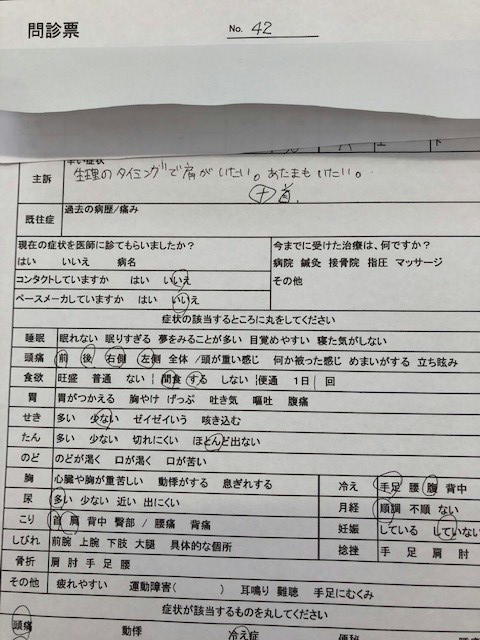 問診票
No. 42
主訴
辛い症状
生理のタイミングで肩がいたい。あたまもいたい。
+首.
既往症 過去の病歴/痛み
現在の症状を医師に診てもらいましたか?
はい いいえ 病名
今までに受けた治療は、何ですか?
病院 鍼灸 接骨院 指圧 マッサージ
その他
コンタクトしていますか はい いいえ
ペースメーカしていますか はい いいえ
症状の該当するところに丸をしてください
睡眠 眠れない 眠りすぎる 夢をみることが多い 目覚めやすい 寝た気がしない
頭痛 前 後 右側 左側 全体 /頭が重い感じ 何か被った感じ めまいがする 立ち眩み
食欲 旺盛 普通 ない 間食 する しない 便通 1日 回
胃 胃がつかえる 胸やけ げっぷ 吐き気 嘔吐 腹痛
せき 多い 少ない ゼイゼイいう 咳き込む
たん 多い 少ない 切れにくい ほとんど出ない
のど のどが渇く 口が渇く 口が苦い
胸 心臓や胸が重苦しい 動悸がする 息ぎれする
冷え 手足 腰 腹 背中
尿 多い 少ない 近い 出にくい
月経 順調 不順 ない
こり 首 肩 背中 臀部 / 腰痛 背痛
妊娠 している していない
しびれ 前腕 上腕 下肢 大腿 具体的な個所
捻挫 手 足 肩 肘
骨折 肩 肘 手 足 腰
その他 疲れやすい 運動障害( ) 耳鳴り 難聴 手足にむくみ
症状が該当するものを丸してください
頭痛 動悸 冷え症 便秘